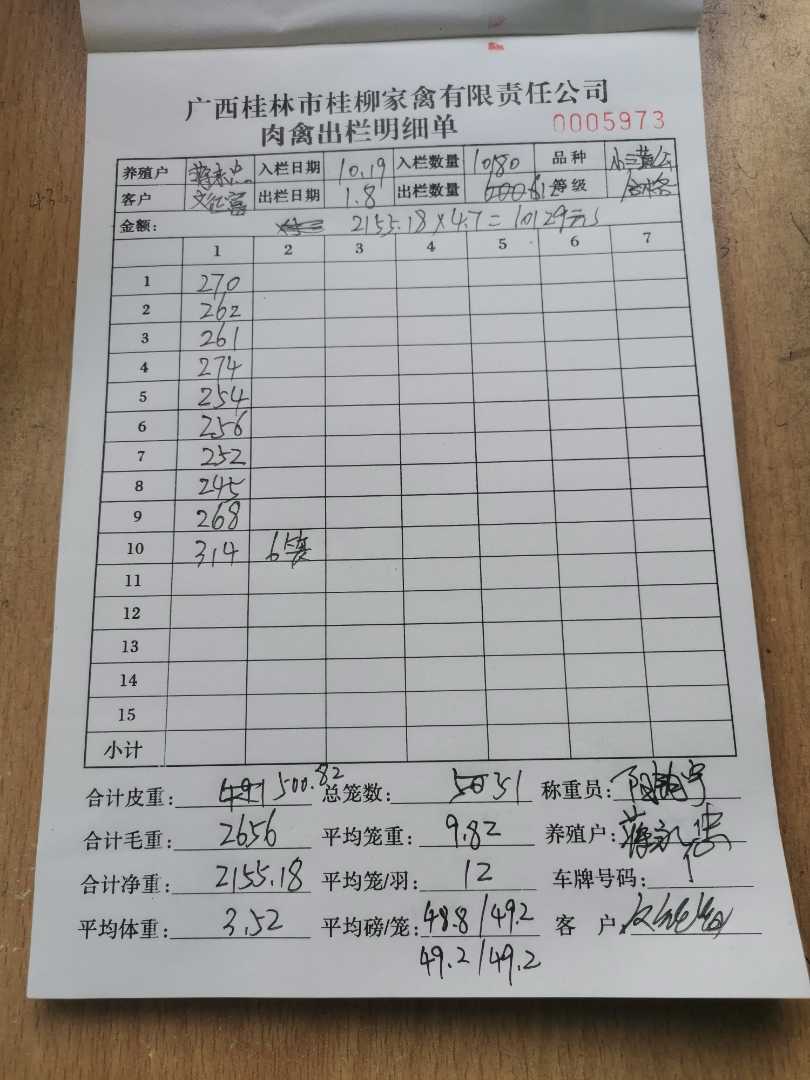 广西桂林市桂柳家禽有限责任公司
肉禽出栏明细单 0005973
养殖户 入栏日期 10.19 入栏数量 1080 品种
客户 出栏日期 1.8 出栏数量 612 等级
金额: 2155.18×4.7=10129元
1 2 3 4 5 6 7
1 270
2 262
3 261
4 274
5 254
6 256
7 252
8 245
9 268
10 314 6笼
11
12
13
14
15
小计
合计皮重: 491 500.82 总笼数: 50 51 称重员:
合计毛重: 2656 平均笼重: 9.82 养殖户: 蒋
合计净重: 2155.18 平均笼/羽: 12 车牌号码:
平均体重: 3.52 平均磅/笼: 48.8/49.2 客 户:
49.2/49.2